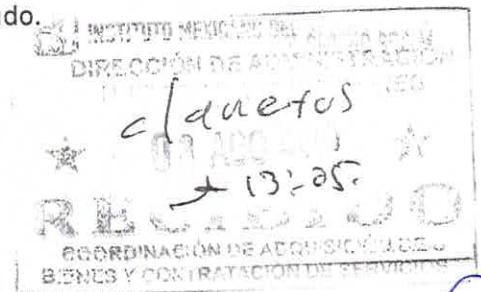 do.
INSTITUTO MEXICANO DEL
DIRECCIÓN DE ADMINISTRACIÓN
c/anexos
01 AGO
13:05.
RECIBIDO
COORDINACIÓN DE ADQUISICIÓN DE
BIENES Y CONTRATACIÓN DE SERVICIOS